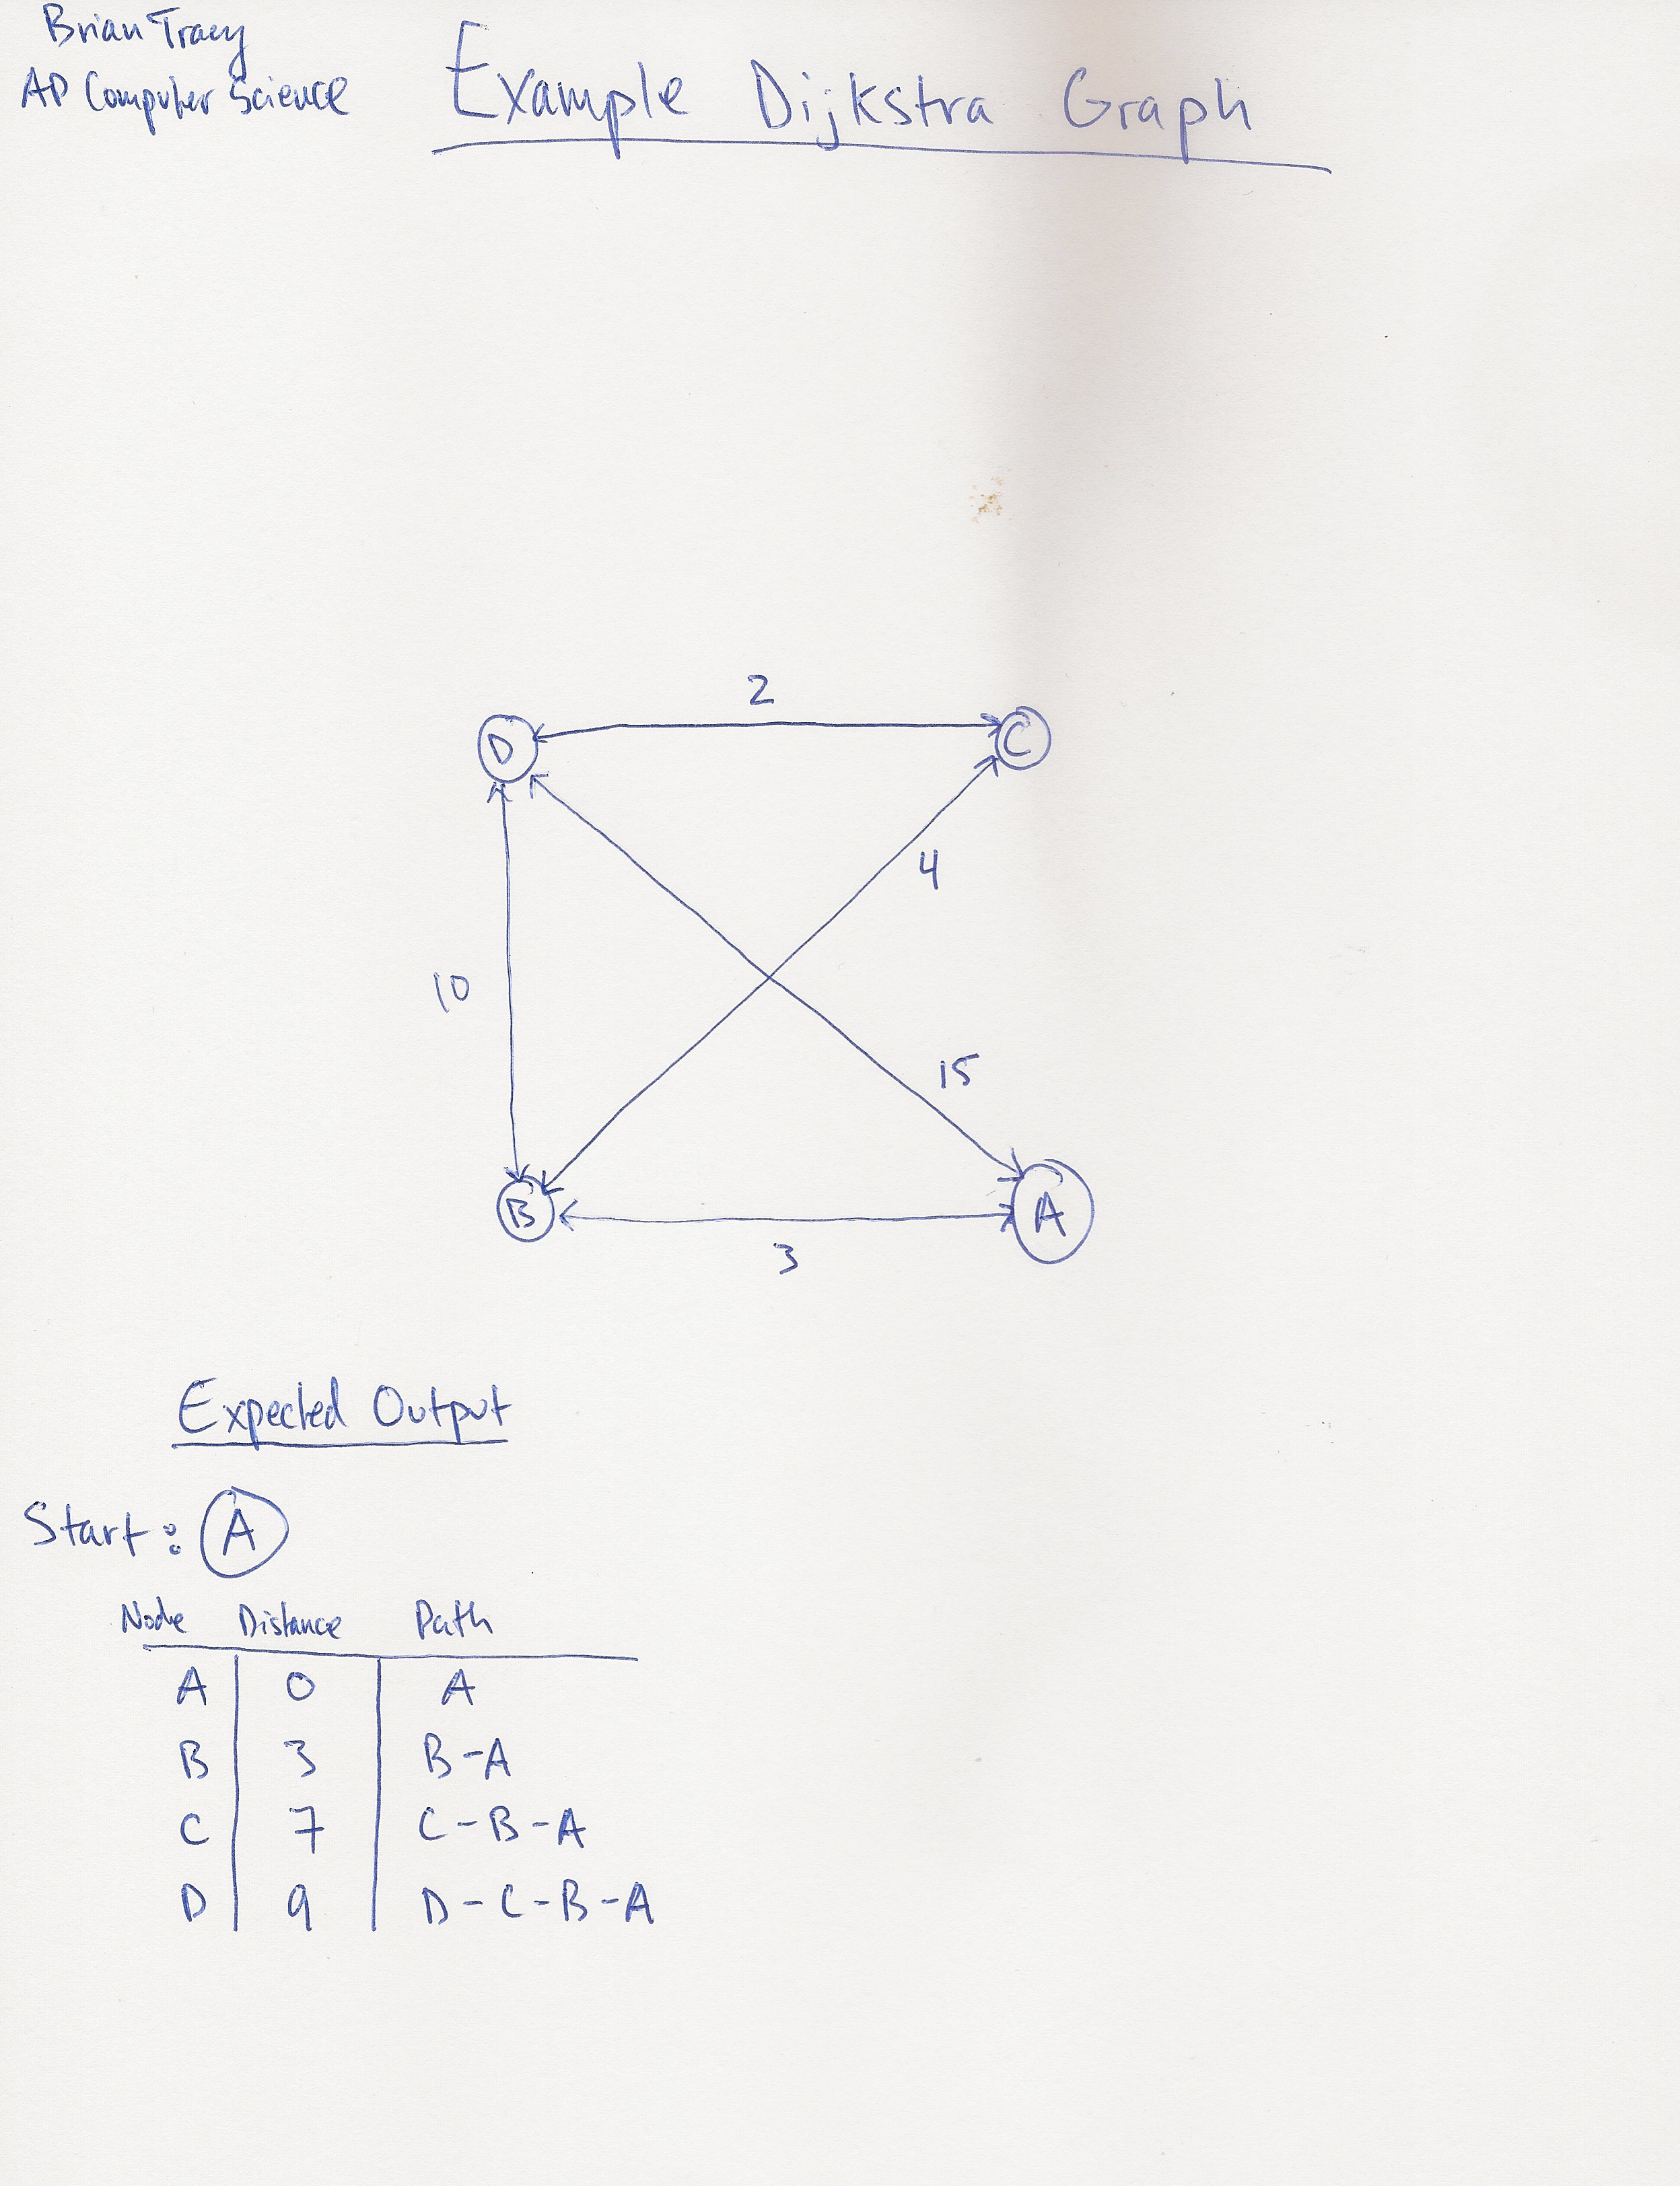 Brian Tracy
AP Computer Science
Example Dijkstra Graph
2
D
C
4
10
15
B
A
3
Expected Output
Start: A
Node Distance Path
A 0 A
B 3 B-A
C 7 C-B-A
D 9 D-C-B-A